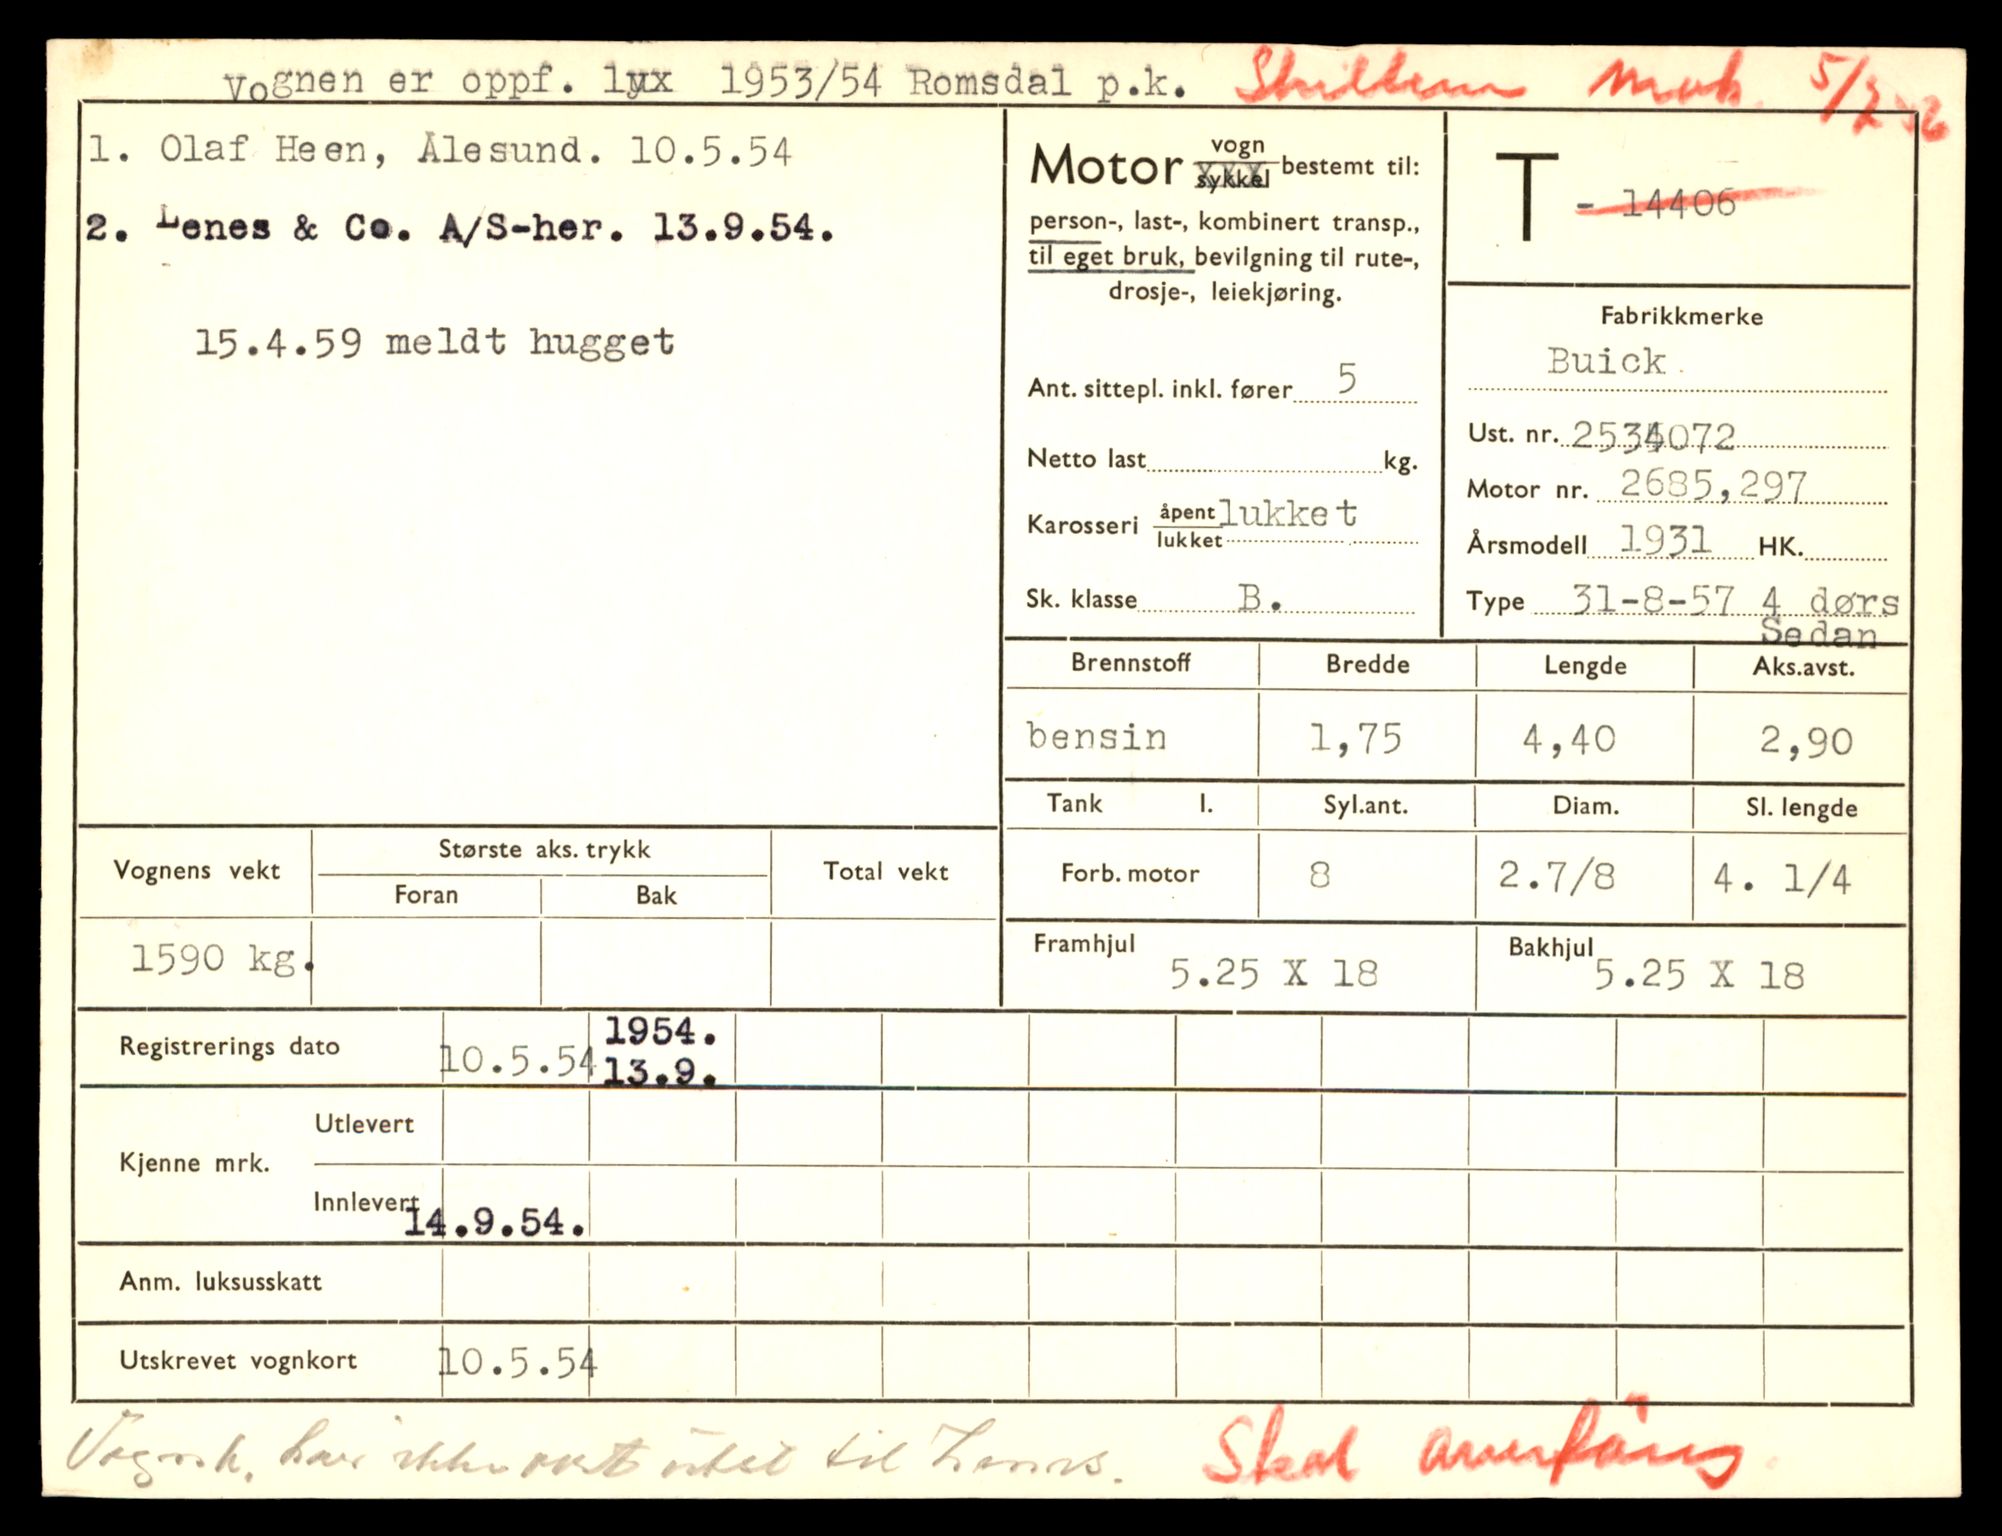 Vognen er oppf. lyx 1953/54 Romsdal p.k.
1. Olaf Heen, Ålesund. 10.5.54
2. Lenes & Co. A/S-her. 13.9.54.
15.4.59 meldt hugget
Motor vogn sykkel bestemt til:
person-, last-, kombinert transp.,
til eget bruk, bevilgning til rute-,
drosje-, leiekjøring.
Ant. sittepl. inkl. fører 5
Netto last kg.
Karosseri åpent lukket lukket
Sk. klasse B.
T - 14406
Fabrikkmerke
Buick.
Ust. nr. 2534072
Motor nr. 2685,297
Årsmodell 1931 HK.
Type 31-8-57 4 dørs
Sedan
Brennstoff Bredde Lengde Aks.avst.
bensin 1,75 4,40 2,90
Tank l. Syl.ant. Diam. Sl. lengde
Forb. motor 8 2.7/8 4. 1/4
Framhjul 5.25 X 18 Bakhjul 5.25 X 18
Vognens vekt Største aks. trykk Total vekt
Foran Bak
1590 kg.
Registrerings dato 10.5.54 1954.
13.9.
Kjenne mrk. Utlevert
Innlevert 14.9.54.
Anm. luksusskatt
Utskrevet vognkort 10.5.54
Vognk. har ikke vært utst. til Lenes. Skal